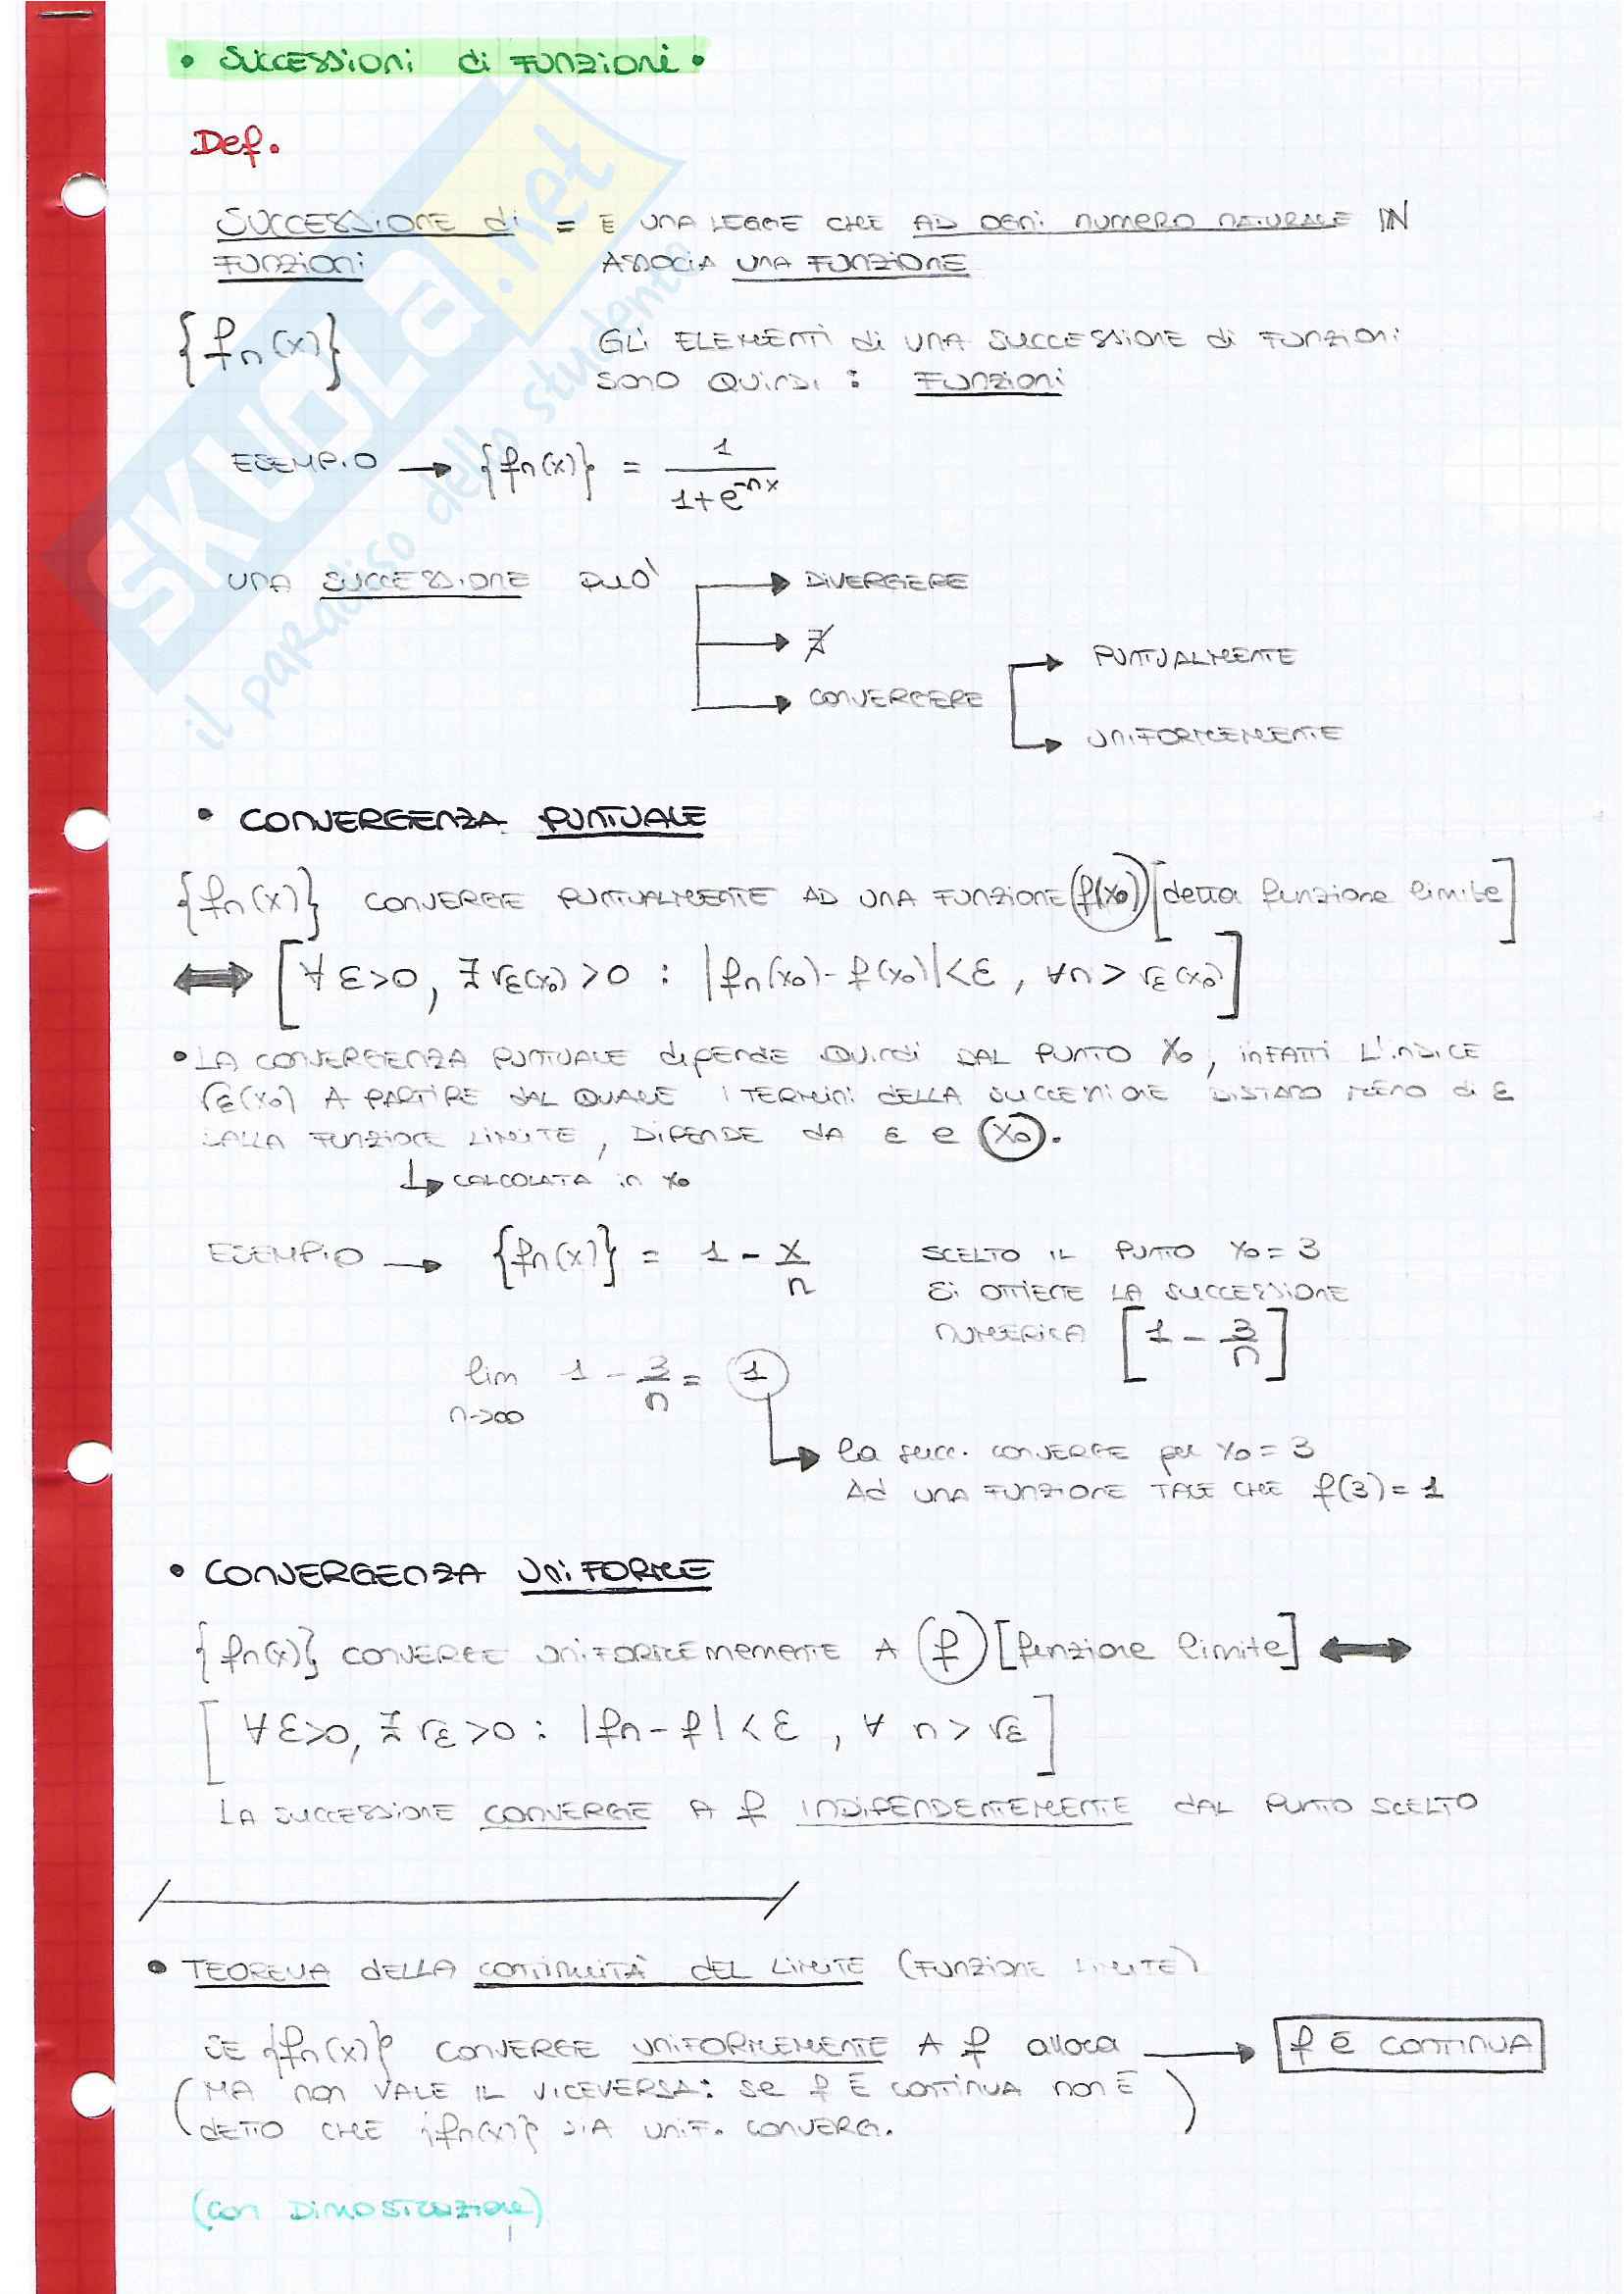 • SUCCESSIONI di FUNZIONI •
Def.
SUCCESSIONE di = È UNA LEGGE CHE AD OGNI NUMERO NATURALE IN
FUNZIONI ASSOCIA UNA FUNZIONE
{fn(x)} GLI ELEMENTI di UNA SUCCESSIONE di FUNZIONI
SONO QUINDI : FUNZIONI
ESEMPIO → {fn(x)} = 1/(1+e^-nx)
UNA SUCCESSIONE PUO' → DIVERGERE
→ ∄
→ CONVERGERE → PUNTUALMENTE
→ UNIFORMEMENTE
• CONVERGENZA PUNTUALE
{fn(x)} CONVERGE PUNTUALMENTE AD UNA FUNZIONE f(x₀) [detta funzione limite]
⟺ [∀ ε>0, ∃ νε(x₀) >0 : |fn(x₀) - f(x₀)| < ε, ∀n > νε(x₀)]
• LA CONVERGENZA PUNTUALE dipende QUINDI DAL PUNTO X₀, INFATTI L'INDICE
νε(x₀) A PARTIRE DAL QUALE I TERMINI DELLA SUCCESSIONE DISTANO MENO di ε
DALLA FUNZIONE LIMITE, DIPENDE DA ε e (x₀).
↳ CALCOLATA in x₀
ESEMPIO → {fn(x)} = 1 - x/n SCELTO IL PUNTO x₀ = 3
Si OTTIENE LA SUCCESSIONE
NUMERICA [1 - 3/n]
lim n->∞ 1 - 3/n = 1
↳ la succ. CONVERGE per x₀ = 3
Ad UNA FUNZIONE TALE CHE f(3) = 1
• CONVERGENZA UNIFORME
{fn(x)} CONVERGE UNIFORMEMEMENTE A f [funzione limite] ⟺
[∀ ε>0, ∃ νε >0 : |fn - f| < ε, ∀ n > νε]
LA SUCCESSIONE CONVERGE A f INDIPENDENTEMENTE DAL PUNTO SCELTO
• TEOREMA DELLA CONTINUITÀ DEL LIMITE (FUNZIONE LIMITE)
SE {fn(x)} CONVERGE UNIFORMEMENTE A f allora → f È CONTINUA
(MA NON VALE IL VICEVERSA: Se f È CONTINUA NON È
DETTO CHE {fn(x)} SIA UNIF. CONVERG.)
(con DIMOSTRAZIONE)
SKUOLA.net
il paradiso dello studente